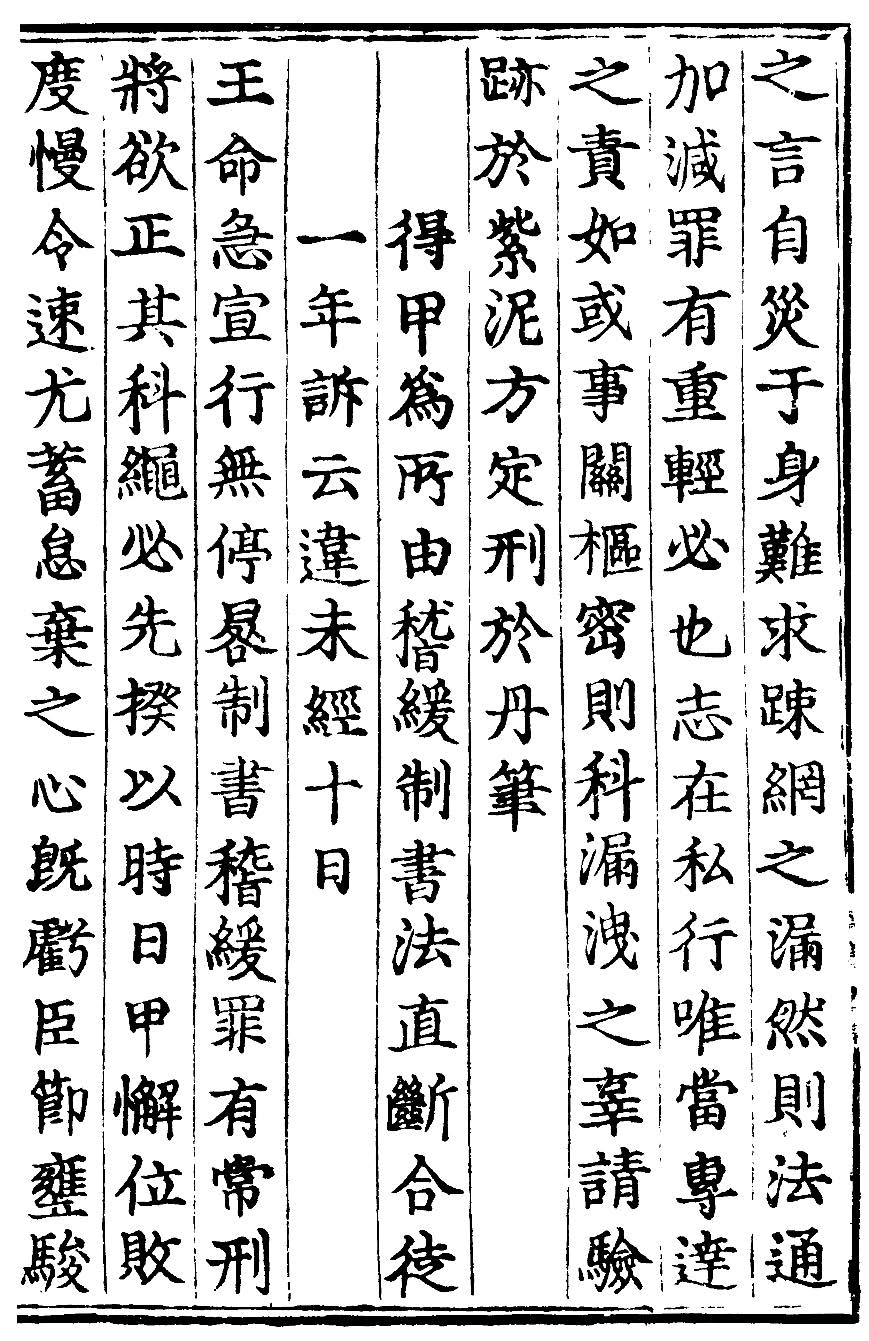 之言自災于身難求踈網之漏然則法通
加減罪有重輕必也志在私行唯當專達
之責如或事關樞密則科漏洩之辜請驗
跡於紫泥方定刑於丹筆
得甲爲所由稽緩制書法直斷合徒
一年訴云違未經十日
王命急宣行無停晷制書稽緩罪有常刑
將欲正其科繩必先揆以時日甲懈位敗
度慢令速尤蓄怠棄之心旣虧臣節壅駿